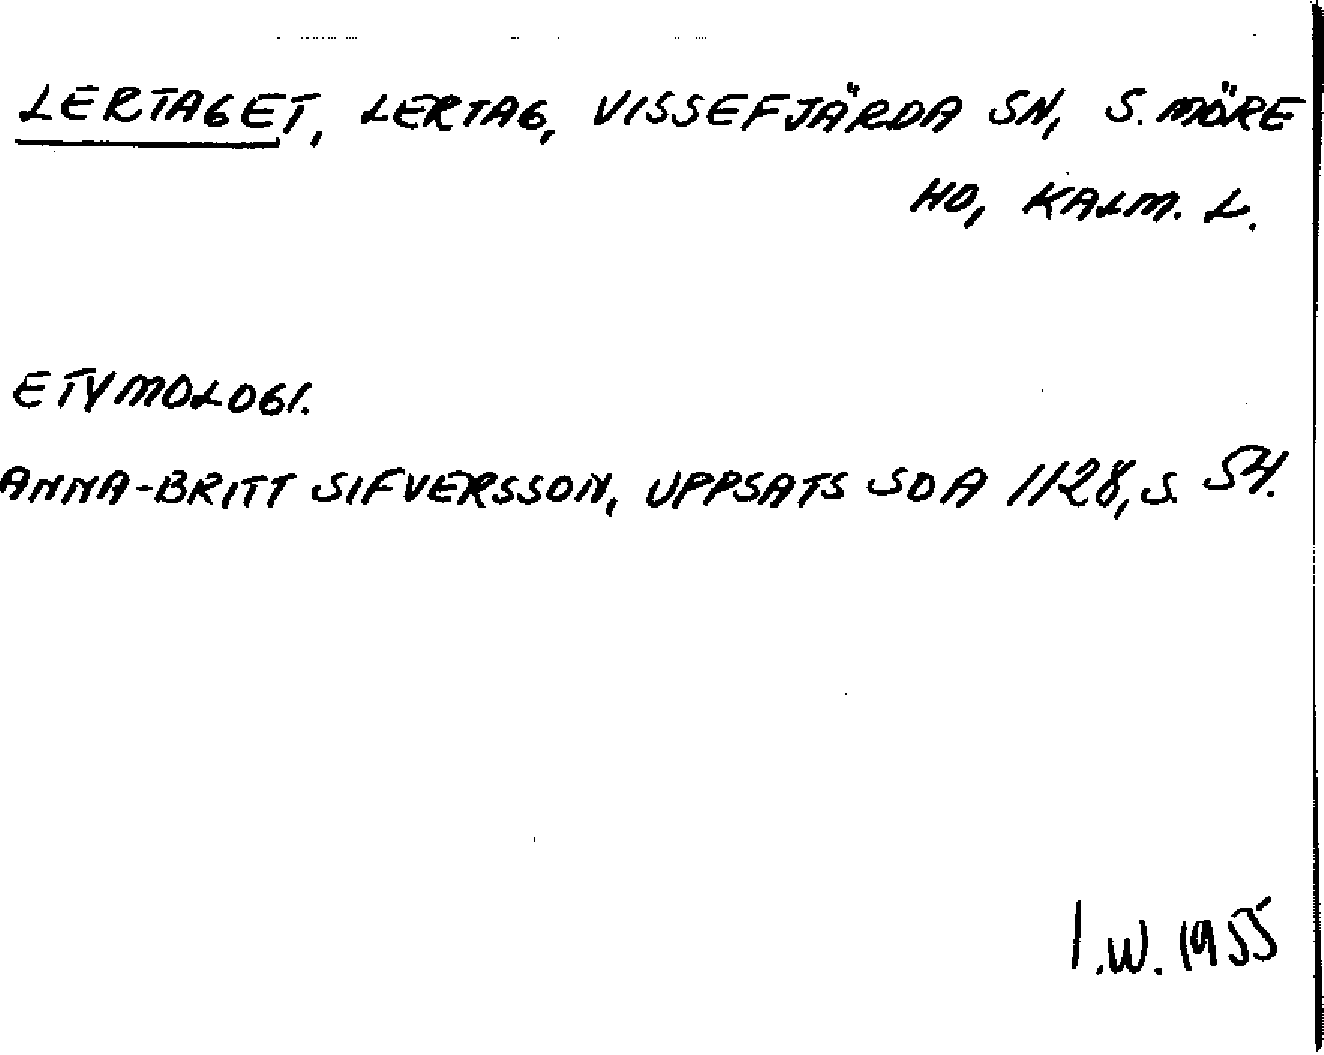 LERTAGET, LERTAG, VISSEFJÄRDA SN, S. MÖRE
HD, KALM. L.
ETYMOLOGI.
ANNA-BRITT SIFVERSSON, UPPSATS SOA 1128, S. 54.
I.W. 1955